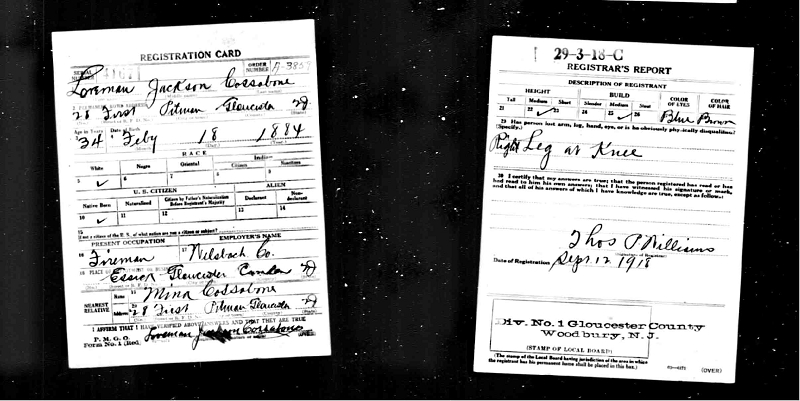 REGISTRATION CARD
SERIAL NUMBER 4167 ORDER NUMBER A-3859
Loreman Jackson Cossabone
28 First Pitman Gloucester NJ
Age in Years Date of Birth
34 Feby 18 1884
RACE
White Negro Oriental Indian
Citizen Noncitizen
5 ✓ 6 7 8 9
U. S. CITIZEN ALIEN
Native Born Naturalized Citizen by Father's Naturalization Before Registrant's Majority Declarant Non-declarant
10 ✓ 11 12 13 14
15
If not a citizen of the U. S., of what nation are you a citizen or subject?
PRESENT OCCUPATION EMPLOYER'S NAME
16 Fireman 17 Co.
18 PLACE OF
Gloucester Camden NJ
NEAREST RELATIVE Name 19 Mina Cossabone
Address 20 28 First Pitman Gloucester NJ
I AFFIRM THAT I HAVE VERIFIED ABOVE ANSWERS AND THAT THEY ARE TRUE
P. M. G. O.
Form No. 1 (Red) Loreman Jackson Cossabone
29-3-18-C
REGISTRAR'S REPORT
DESCRIPTION OF REGISTRANT
HEIGHT BUILD COLOR OF EYES COLOR OF HAIR
Tall Medium Short Slender Medium Stout
21 22 ✓ 23 24 25 ✓ 26 Blue Brown
29 Has person lost arm, leg, hand, eye, or is he obviously physically disqualified?
(Specify.)
Right Leg at Knee
30 I certify that my answers are true; that the person registered has read or has
had read to him his own answers; that I have witnessed his signature or mark,
and that all of his answers of which I have knowledge are true, except as follows:
Thos P Williams
Date of Registration Sept. 12 1918
Div. No. 1 Gloucester County
Woodbury, N. J.
(STAMP OF LOCAL BOARD)
(The stamp of the Local Board having jurisdiction of the area in which
the registrant has his permanent home shall be placed in this box.)
(OVER)